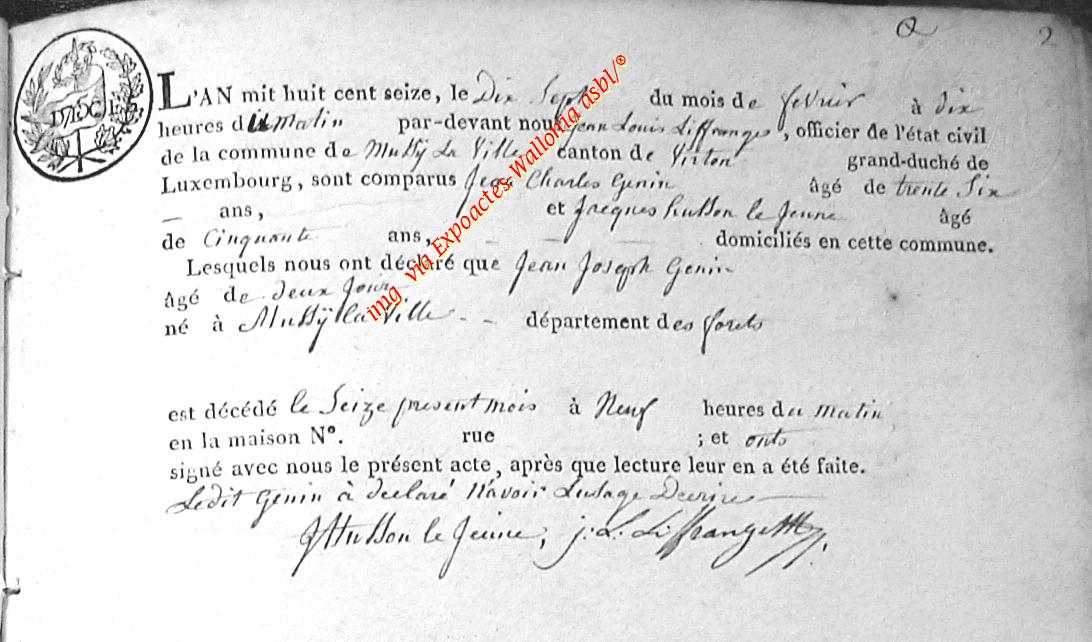 2
L'AN mit huit cent seize, le Dix Sept du mois de fevrier à dix
heures du Matin par-devant nous jean Louis Liffrange, officier de l'état civil
de la commune de Mussÿ La Ville canton de Virton grand-duché de
Luxembourg, sont comparus Jean Charles Genin âgé de trente Six
— ans, et Jacques husson le jeune âgé
de Cinquante ans, — — domiciliés en cette commune.
Lesquels nous ont déclaré que Jean Joseph Genin
âgé de deux jour
né à Mussÿ la Ville - - département des forets
est décédé le Seize present mois à Neuf heures du matin
en la maison N°. rue ; et onts
signé avec nous le présent acte, après que lecture leur en a été faite.
Ledit Genin à declaré N'avoir Lusage Decrire
JHusson le Jeune, j. L. Liffrange
img via Expoactes Wallonia asbl/®